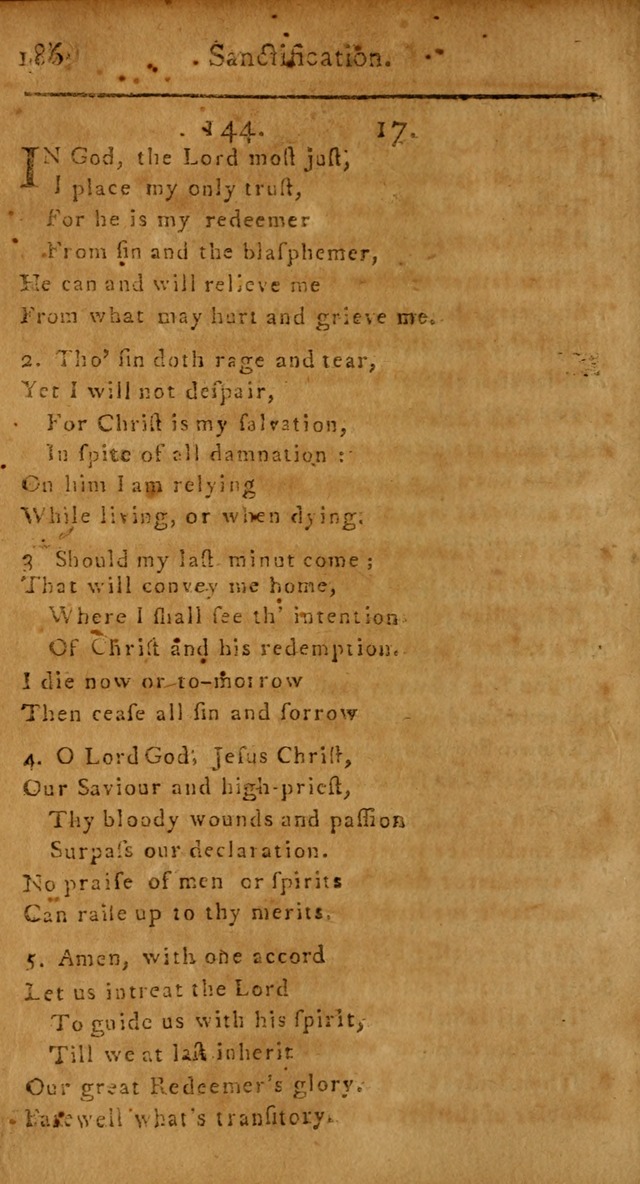 186 Sanctification.
144. 17.
IN God, the Lord moſt juſt;
I place my only truſt,
For he is my redeemer
From ſin and the blaſphemer,
He can and will relieve me
From what may hurt and grieve me.
2. Tho' ſin doth rage and tear,
Yet I will not deſpair,
For Chriſt is my ſalvation,
In ſpite of all damnation :
On him I am relying
While living, or when dying;
3 Should my laſt minut come ;
That will convey me home,
Where I ſhall ſee th' intention
Of Chriſt and his redemption.
I die now or to-morrow
Then ceaſe all ſin and ſorrow
4. O Lord God; Jeſus Chriſt,
Our Saviour and high-prieſt,
Thy bloody wounds and paſſion
Surpaſs our declaration.
No praiſe of men or ſpirits
Can raiſe up to thy merits.
5. Amen, with one accord
Let us intreat the Lord
To guide us with his ſpirit,
Till we at laſt inherit
Our great Redeemer's glory.
Farewell what's tranſitory.